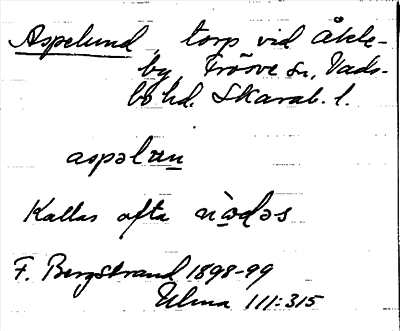 Aspelund, torp vid Åkle-
by, Fröove sn, Vads-
bo hd. Skarab. l.
aspəlɯn
Kallas ofta
F. Bergstrand 1898-99
Ulma 111:315